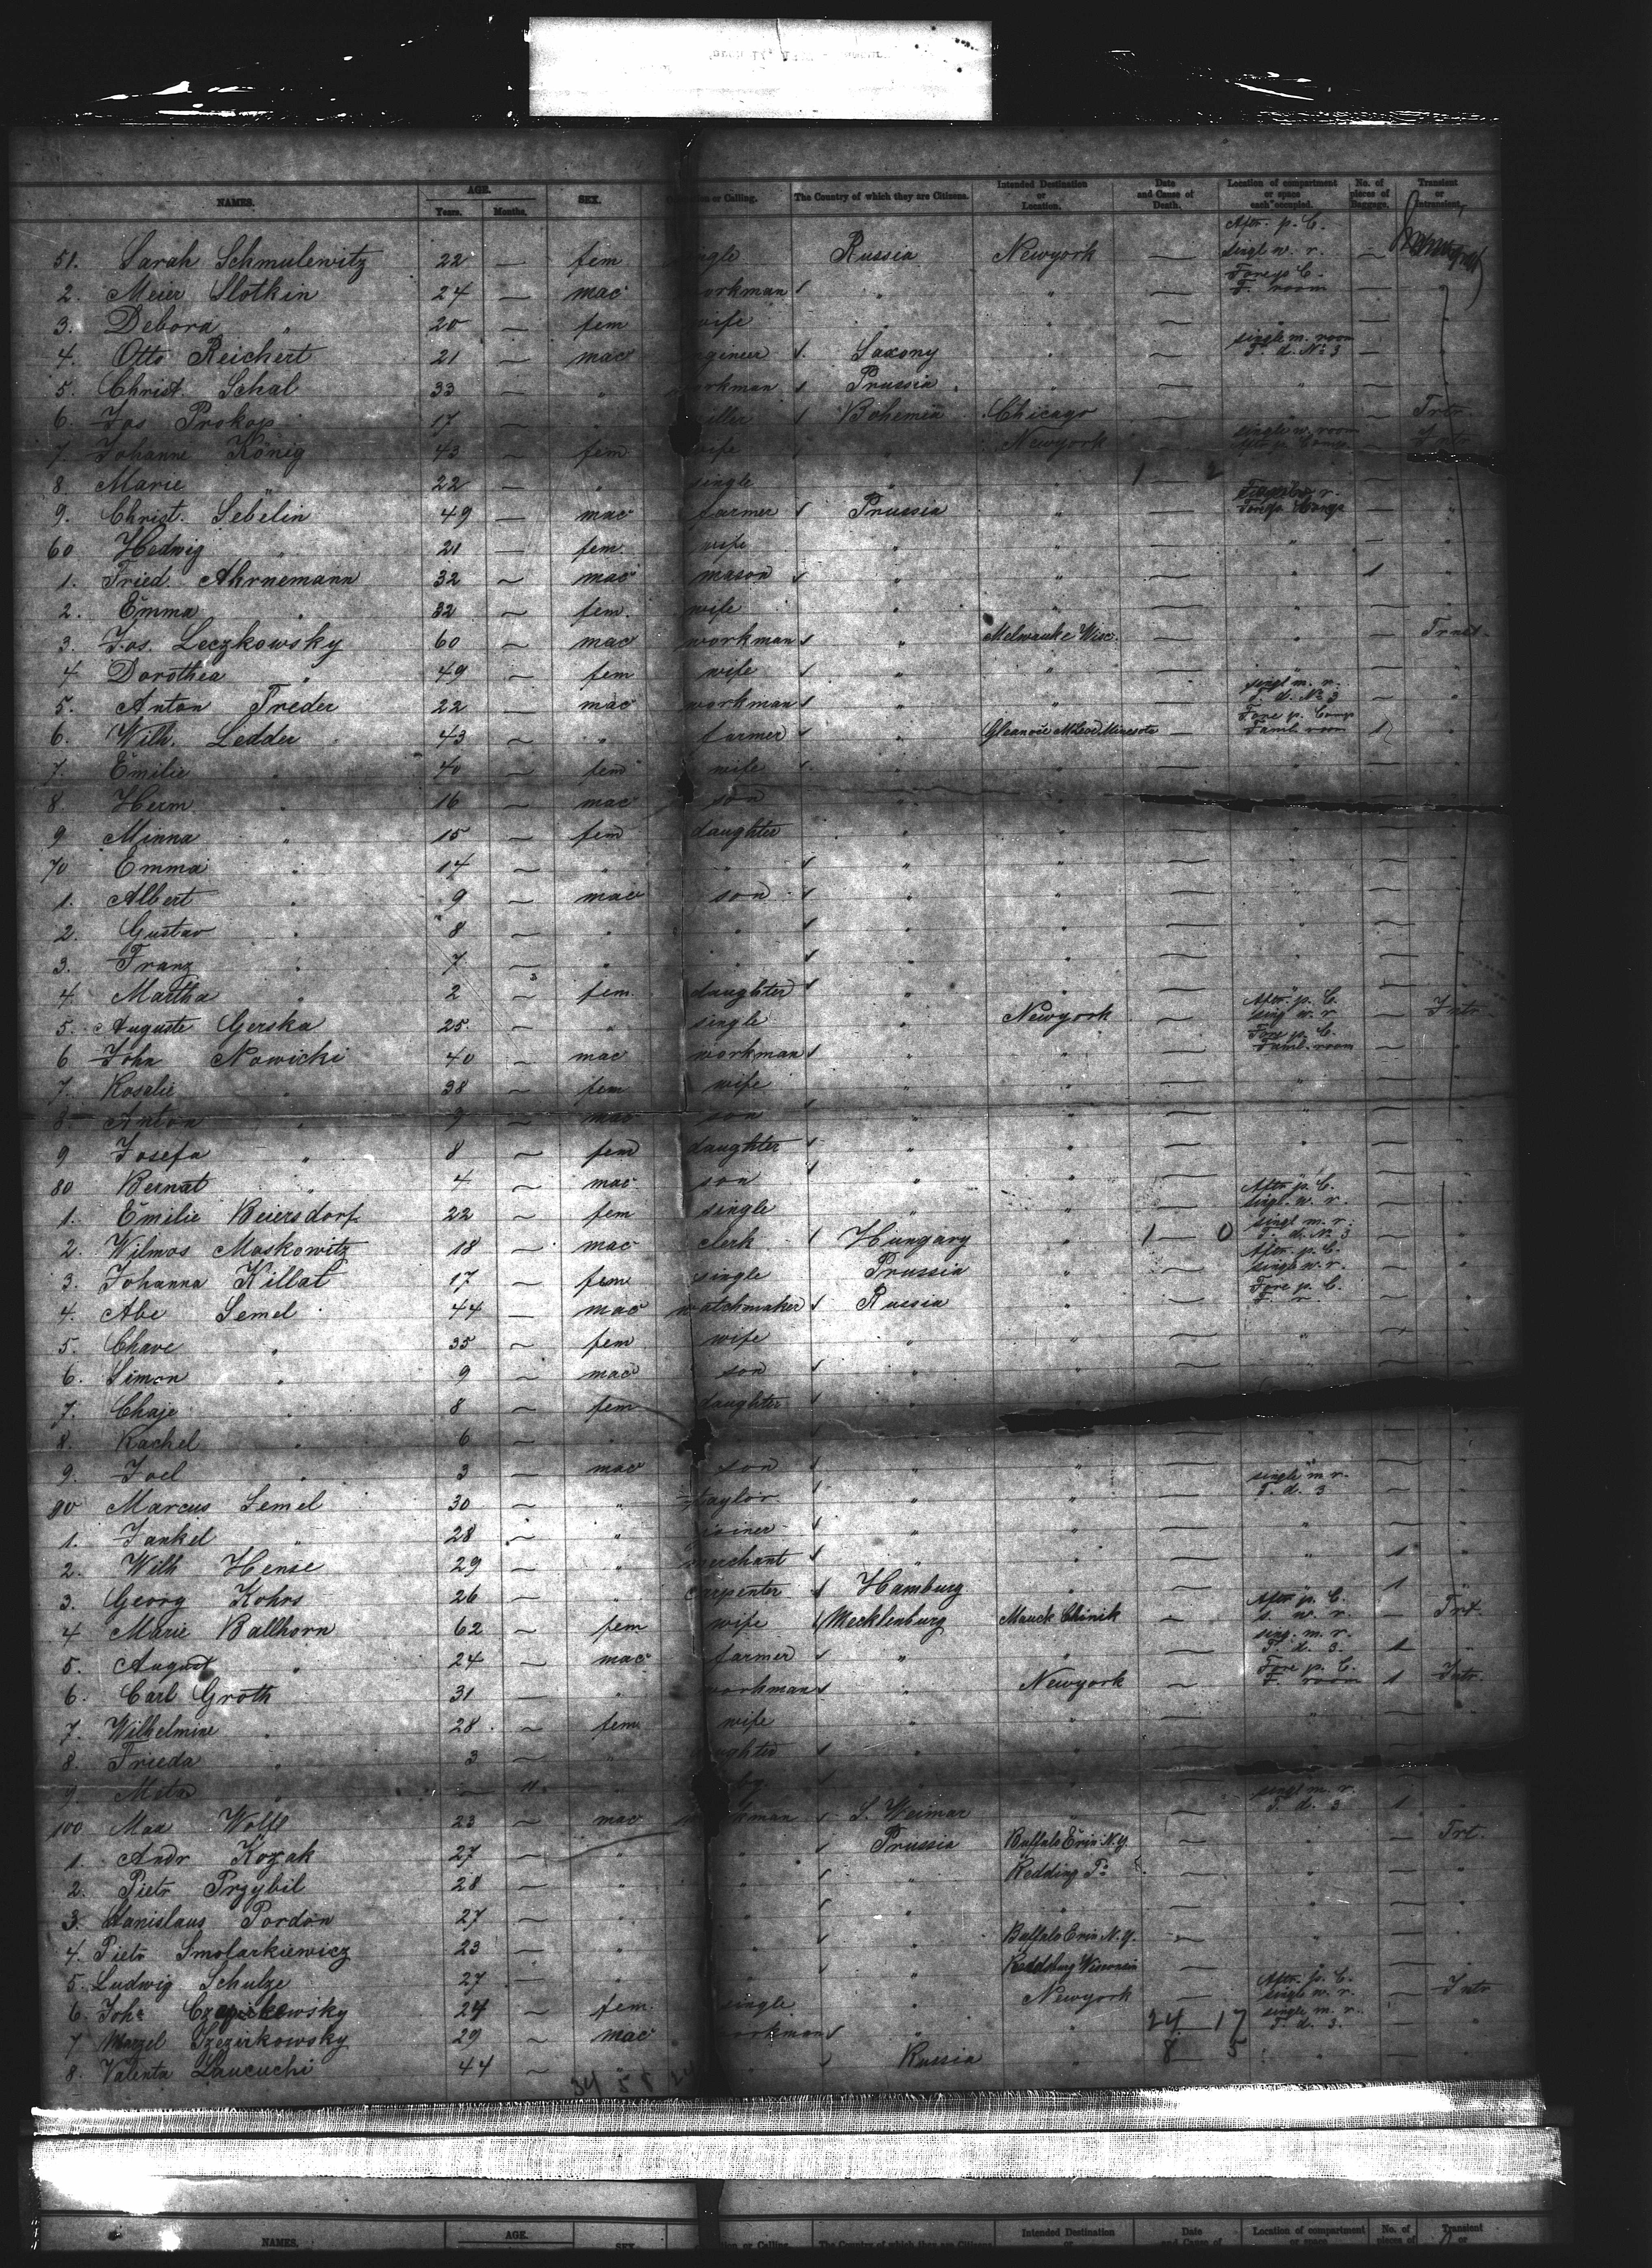 NAMES. AGE. Years. Months. SEX. or Calling. The Country of which they are Citizens. Intended Destination or Location. Date and Cause of Death. Location of compartment or space each occupied. No. of pieces of Baggage. Transient or Intransient.
51. Sarah Schmulewitz 22 — fem single Russia Newyork — Aftr. p. C. singl w. r. —
2. Meier Slotkin 24 — mac workman " " — Fore p C. F. room —
3. Debora " 20 — fem wife " " — " —
4. Otto Reichert 21 — mac engineer Saxony " — single m. room T. d. No 3 —
5. Christ. Schal 33 — " workman Prussia " — " —
6. Jos Prokop 17 — " miller Bohemia Chicago — " — Trtr.
7. Johanne König 43 — fem wife " Newyork — single w. room Aftr p. Comp. — Intr
8. Marie " 22 — " single " " 1 — 2 " —
9. Christ. Sebelin 49 — mac farmer Prussia " — —
60 Hedwig " 21 — fem. wife " " — " —
1. Fried. Ahrnemann 32 — mac mason " " — " 1 "
2. Emma " 32 — fem. wife " " — " —
3. Jos. Leczkowsky 60 — mac workman " Melwauke Wisc. — " — Trnst.
4 Dorothea " 49 — fem wife " " — " —
5. Anton Treder 22 — mac workman " " — singl m. r. T. d. No 3 — "
6. Wilh. Ledder 43 — " farmer " — Fore p. Comp Famil room 1 "
7. Emilie " 40 — fem wife " " — " — "
8. Herm " 16 — mac son " "
9 Minna " 15 — fem daughter " " — " —
70 Emma " 14 — " " " " — " —
1. Albert " 9 — mac son " " — " —
2. Gustav " 8 — " " " " — " —
3. Franz " 7 — " " " " — " —
4. Martha " 2 3 fem. daughter " " — " —
5. Auguste Gerska 25 — " single " Newyork — Aftr. p. C. sing w. r — Intr
6 John Nowicki 40 — mac workman " " — Fore p. C. Famil. room — "
7. Rosalie " 38 — fem wife " " — " —
8. Anton " 9 — mac son " " — " —
9 Josefa " 8 — fem daughter " " — " —
80 Bernat " 4 — mac son " " — " —
1. Emilie Beiersdorf 22 — fem single " " — Aftr. p. C. singl. w. r. — "
2. Wilmos Moskowitz 18 — mac clerk Hungary " 1 — 0 singl m. r. T. d. No 3 — "
3. Johanna Killat 17 — fem single Prussia " — Aftr. p. C. singl w. r. — "
4. Abe Semel 44 — mac watchmaker Russia " — Fore p. C. F. r. — "
5. Chave " 35 — fem wife " " — " —
6. Simon " 9 — mac son " " —
7. Chaje " 8 — fem daughter "
8. Rachel " 6 — " " — —
9. Joel " 3 — mac son " " — " —
90 Marcus Semel 30 — " taylor " " — single m r. T. d. 3 — "
1. Jankel " 28 — " joiner " " — " —
2. Wilh Hense 29 — " merchant " " — " 1 "
3. Georg Kohrs 26 — " carpenter Hamburg " — " 1 "
4 Marie Ballhorn 62 — fem wife Mecklenburg Mauck Chinik — Aftr. p. C. s. w. r. — Trt.
5. August " 24 — mac farmer " " — sing. m. r. T. d. 3. 1 "
6. Carl Groth 31 — " workman " Newyork — Fore p. C. F. room 1 Intr.
7. Wilhelmine " 28 — fem wife " " — " —
8. Frieda " 3 — " daughter " " — " —
9. Meta " — 11 "
100 Max Wolff 23 — mac workman S. Weimar " — singl m. r. T. d. 3 1 "
1. Andr Kozak 27 — " " Prussia Buffalo Erie N.Y. — " — Trt.
2. Pietr Przybil 28 — " " " Redding Pa — " — "
3. Stanislaus Pordon 27 — " " " " — " — "
4. Pietr Smolarkiewicz 23 — " " " Buffalo Erie N.Y. — " — "
5. Ludwig Schulze 27 — " " " Reddsburg Wisconsin — " — "
6. Joha 24 — fem. single " Newyork — Aftr. p. C. single w. r. — Intr
7 29 — mac workman " " 24 17 single m. r. T. d. 3. — "
8. Valenta Laucuchi 44 — " " Russia " 8 5 " — "
34 58
NAMES. AGE. SEX or Calling. The Country of which they are Citizens Intended Destination or Date and Cause of Location of compartment or space No. of pieces of Transient or